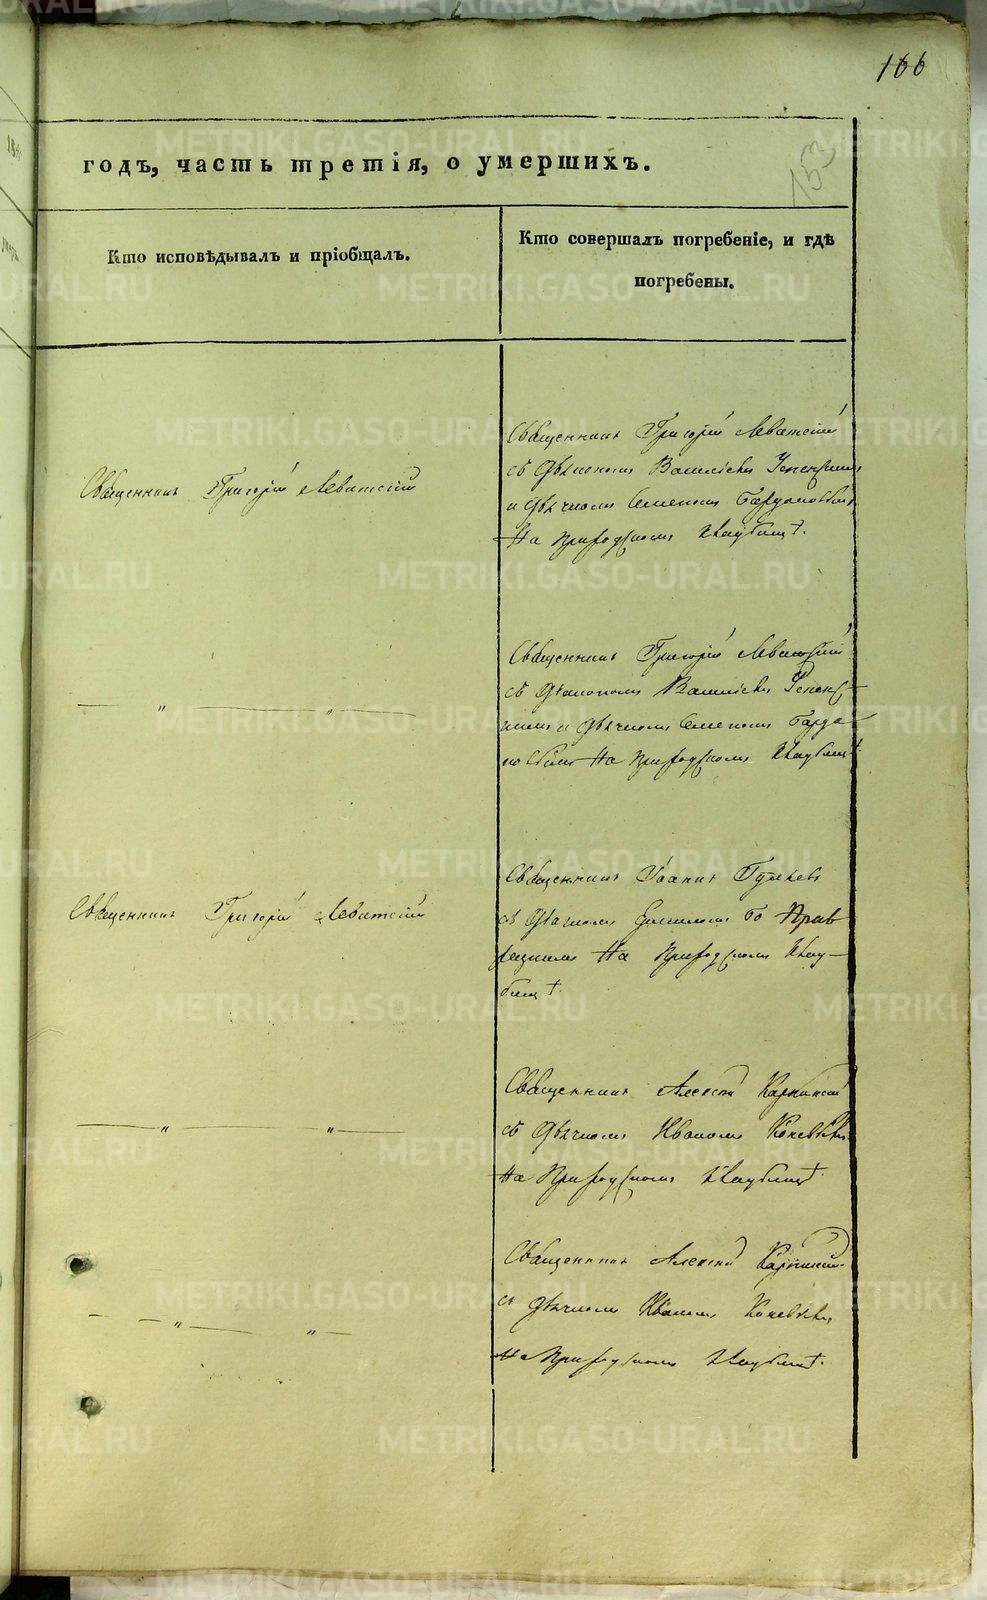 166
153
годъ, часть третія, о умершихъ.
Кто исповѣдывалъ и пріобщалъ.
Кто совершалъ погребеніе, и гдѣ
погребены.
Священникъ Григорій Левитскій
Священникъ Григорій Левитскій
съ Діакономъ Василіемъ Успенскимъ
и Дьячкомъ Семеномъ
На приходскомъ Кладбищѣ.
— „ — „ —
Священникъ Григорій Левитскій
съ Діакономъ Василіемъ Успенс-
кимъ и Дьячкомъ Семеномъ
На приходскомъ Кладбищѣ.
Священникъ Григорій Левитскій
Священникъ Іоаннъ
съ Дьячкомъ
На приходскомъ Клад-
бищѣ.
— „ — „ —
Священникъ Алексій
съ Дьячкомъ Иваномъ
На приходскомъ Кладбищѣ.
— „ — „ —
Священникъ Алексій
съ Дьячкомъ Иваномъ
На приходскомъ Кладбищѣ.
METRIKI.GASO-URAL.RU